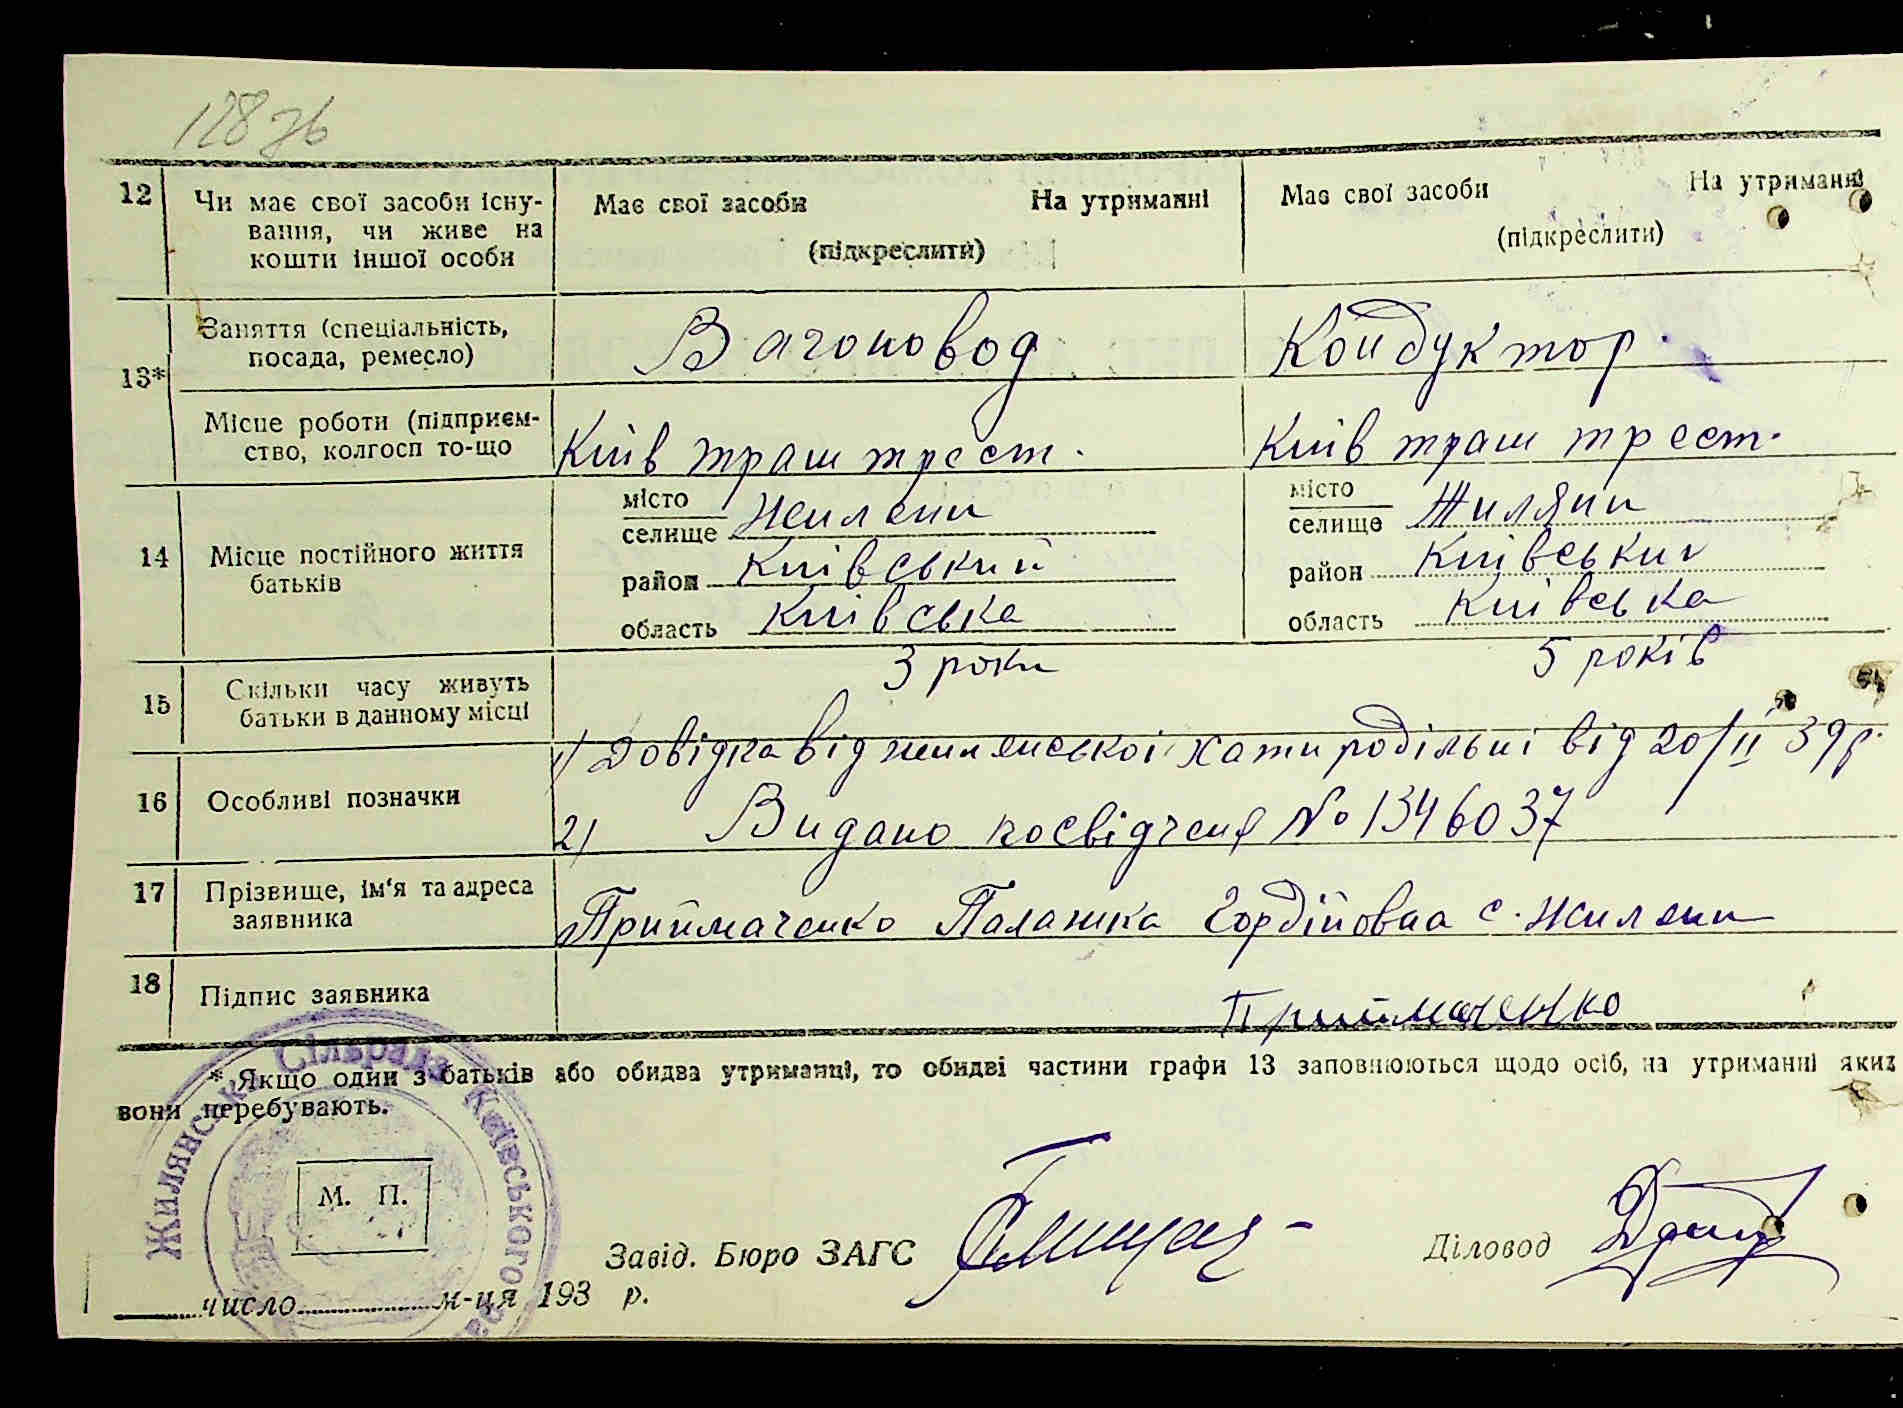 128 зв
12 Чи має свої засоби існу-
вання, чи живе на
кошти іншої особи
Має свої засоби На утриманні
(підкреслити)
Має свої засоби На утриманні
(підкреслити)
13*
Заняття (спеціальність,
посада, ремесло)
Вагоновод
Кондуктор.
Місце роботи (підприєм-
ство, колгосп то-що
Київ трам трест.
Київ трам трест.
14 Місце постійного життя
батьків
місто
селище Жиляни
район Київський
область Київська
місто
селище Жиляни
район Київський
область Київська
15 Скільки часу живуть
батьки в данному місці
3 роки
5 років
16 Особливі позначки
1) Довідка від жилянської хати родільні від 20/II 39р.
2) Видано посвідченя № 1346037
17 Прізвище, ім'я та адреса
заявника
Приймаченко Палажка Гордійовна с. Жиляни
18 Підпис заявника
Приймаченко
* Якщо один з батьків або обидва утриманці, то обидві частини графи 13 заповнюються щодо осіб, на утриманні яких
вони перебувають.
Жилянськ Сільрада Київського
М. П.
Завід. Бюро ЗАГС
Діловод
число м-ця 193 р.